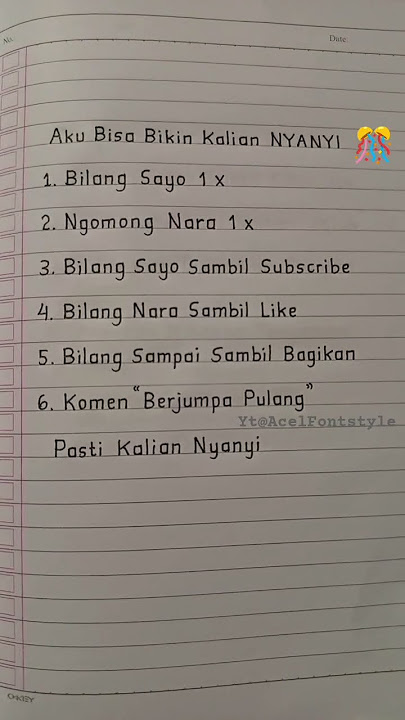 No.
Date.
Aku Bisa Bikin Kalian NYANYI
1. Bilang Sayo 1 x
2. Ngomong Nara 1 x
3. Bilang Sayo Sambil Subscribe
4. Bilang Nara Sambil Like
5. Bilang Sampai Sambil Bagikan
6. Komen “Berjumpa Pulang”
Yt@AcelFontstyle
Pasti Kalian Nyanyi